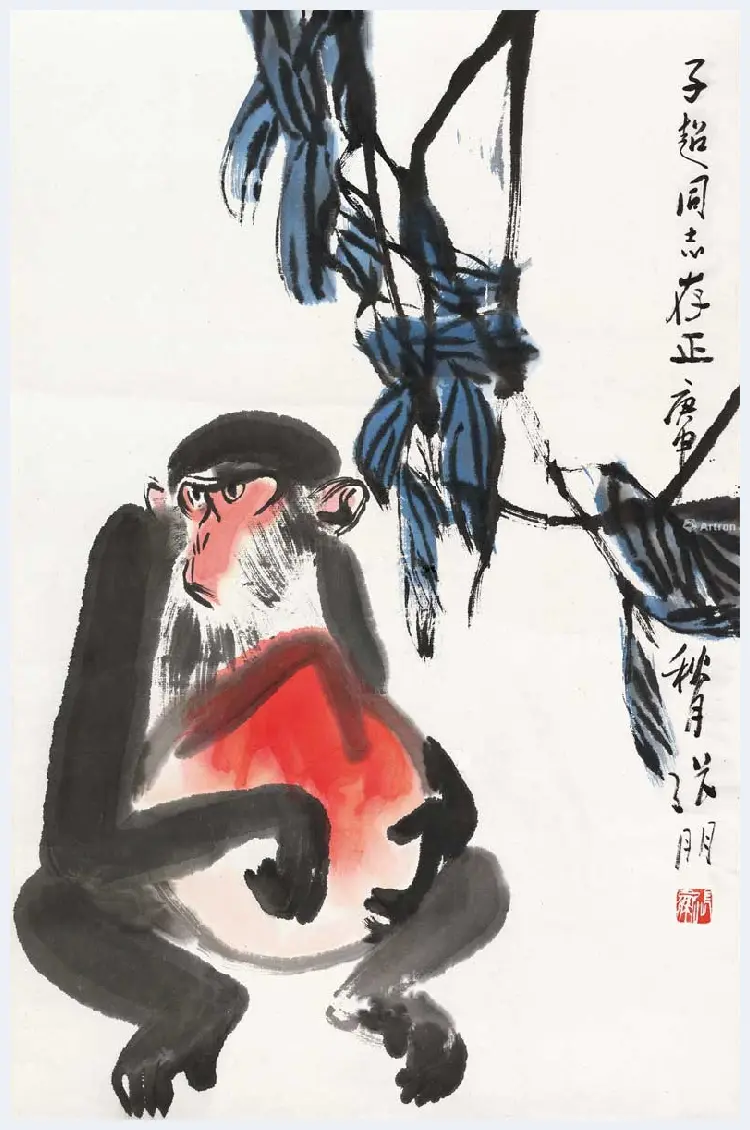 子超同志存正
庚申
秋月
张朋
Artron